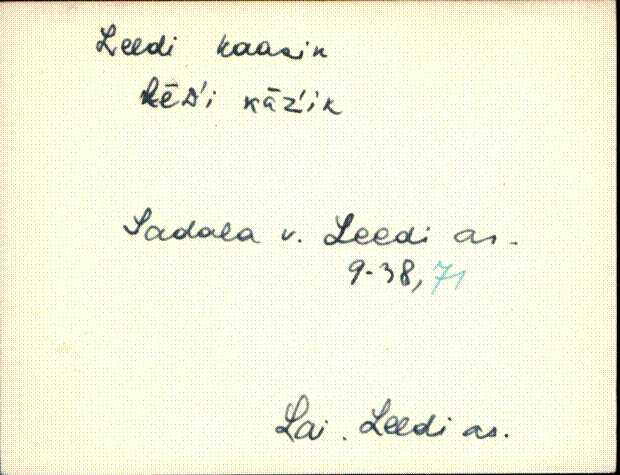 Leedi kaasik
lēᴅ́i kāź́ik
Sadala v. Leedi as.
9-38, 71
Lai. Leedi as.